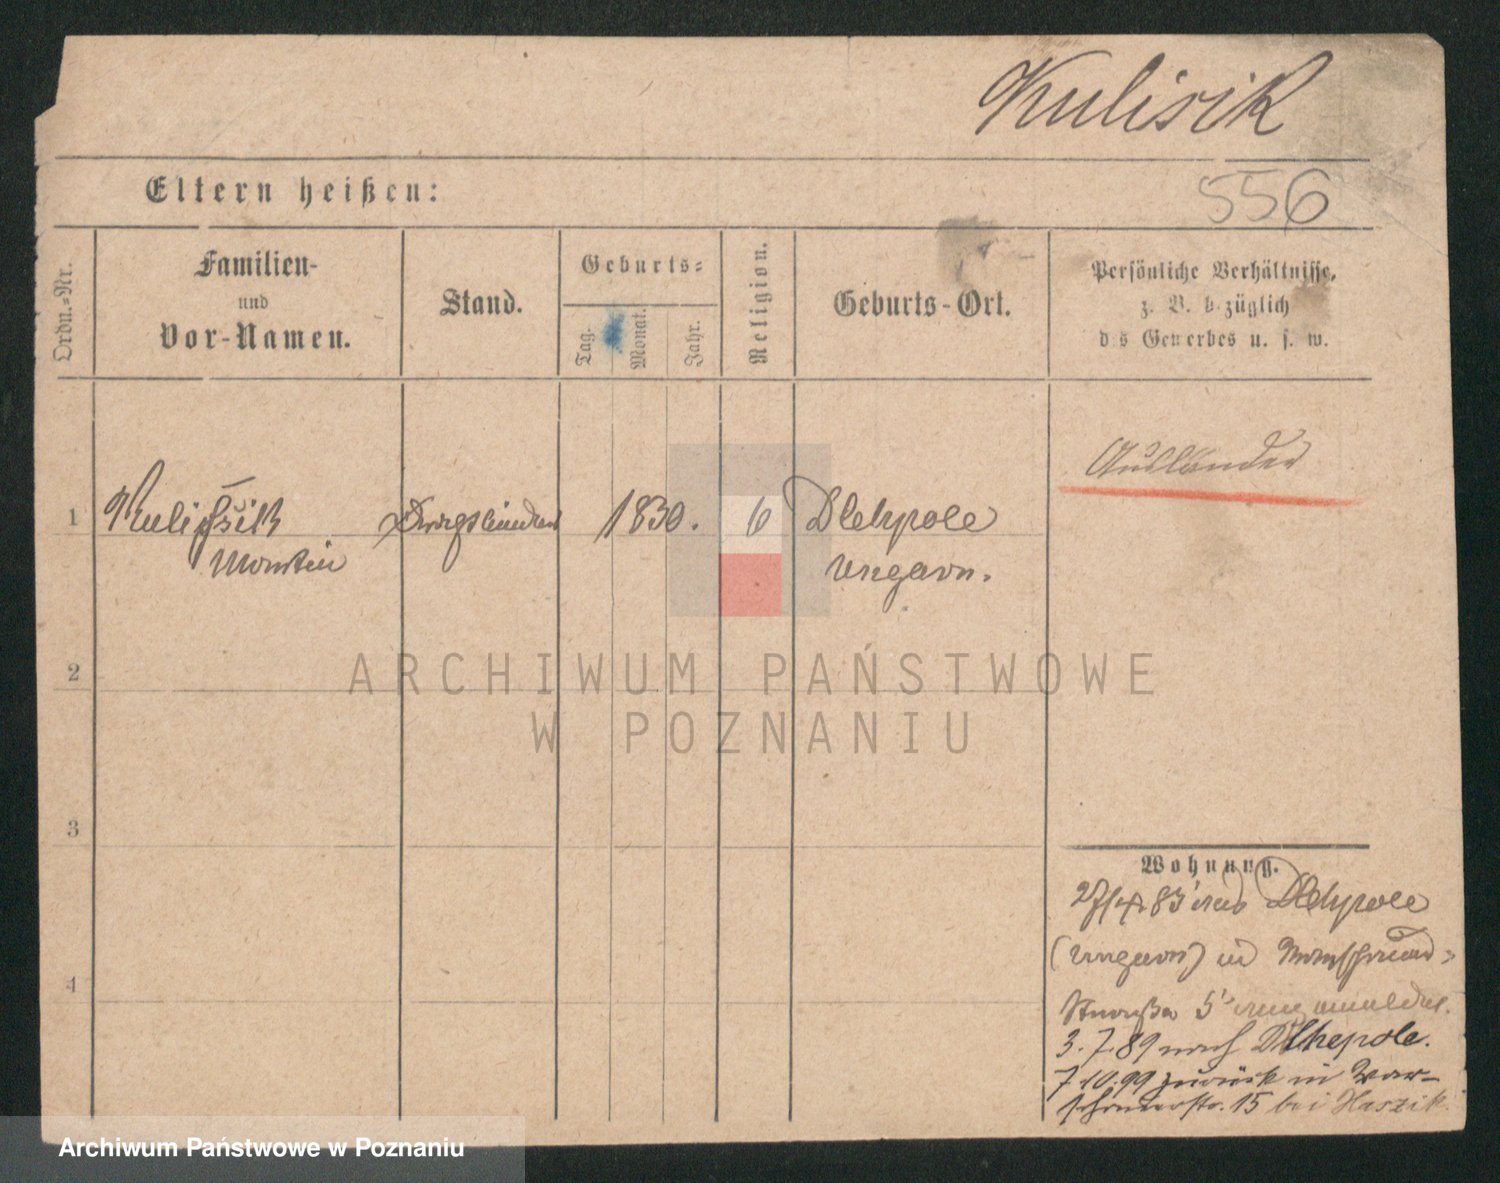 Kulisik
556
Eltern heißen:
Ordn.-Nr.
Familien-
und
Vor-Namen.
Stand.
Geburts-
Tag.
Monat.
Jahr.
Religion.
Geburts-Ort.
Persönliche Verhältnisse,
z. B. bezüglich
des Gewerbes u. s. w.
Ausländer
1
1830.
Dlehpole
Martin
Ungarn.
2
ARCHIWUM PAŃSTWOWE
W POZNANIU
3
Wohnung.
83 aus Dlehpole
(Ungarn) in Warschauer-
Straße 5
3.7.89 nach Dlhepole.
4
7.10.99 zurück in War-
schauerstr. 15 bei Haszik.
Archiwum Państwowe w Poznaniu